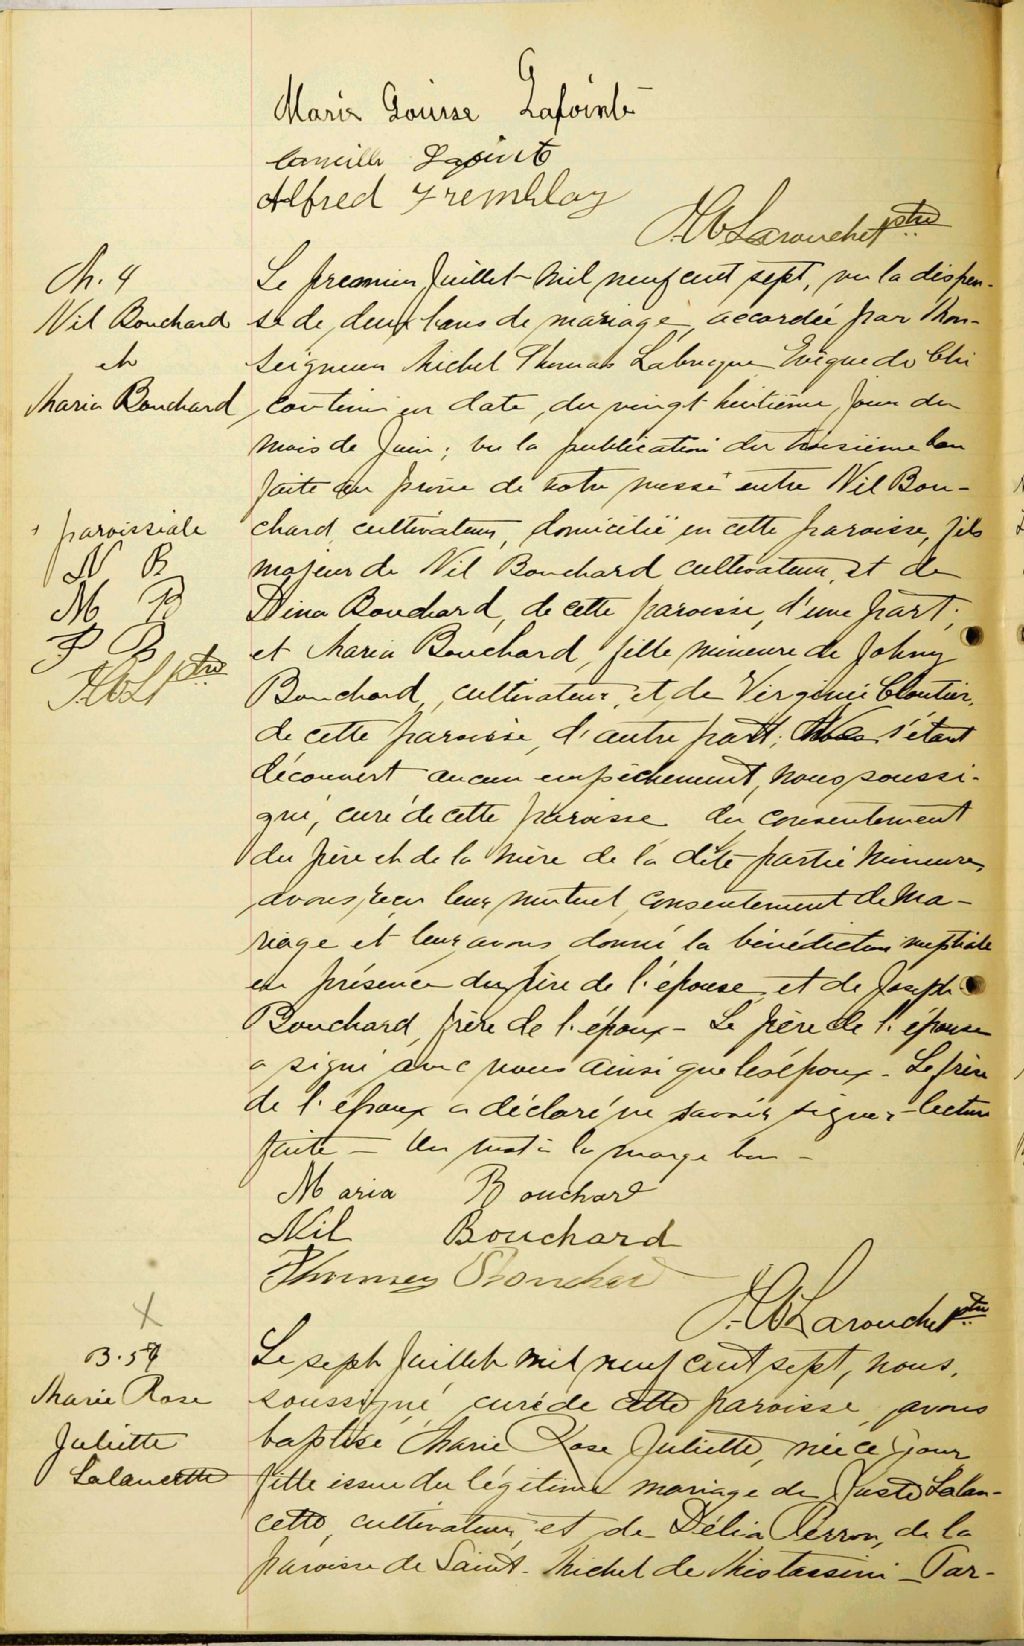 Marie Louise Lafointe
Camille Lapointe
Alfred Tremblay
Larouche ptre
M. 4
Nil Bouchard
et
Maria Bouchard
Le premier Juillet mil neuf cent sept, vu la dispen-
se de deux bans de mariage, accordée par Mon-
seigneur Michel Thomas Labrecque Evêque de Chi
coutimi en date du vingt huitième jour du
mois de Juin; vu la publication du troisième ban
faite au prône de notre messe entre Nil Bou-
+ paroissiale
N B
M B
P B
ptre
chard, cultivateur, domicilié en cette paroisse, fils
majeur de Nil Bouchard cultivateur, et de
Dina Bouchard, de cette paroisse, d'une part;
et Maria Bouchard, fille mineure de Johny
Bouchard, cultivateur, et de Virginie Cloutier,
de cette paroisse, d'autre part; s'étant
découvert aucun empêchement, nous soussi-
gné, curé de cette paroisse du consentement
du père et de la mère de la dite partie mineure,
avons reçu leur mutuel consentement de ma-
riage et leur avons donné la bénédiction nuptiale
en présence du père de l'épouse et de Joseph
Bouchard, frère de l'époux - Le père de l'épouse
a signé avec nous ainsi que les époux - Le frère
de l'époux a déclaré ne savoir signer - lecture
faite - Un mot à la marge bon -
Maria Bouchard
Nil Bouchard
Bouchard
Larouche ptre
X
B. 57
Marie Rose
Juliette
Lalancette
Le sept Juillet mil neuf cent sept, nous,
soussigné, curé de cette paroisse, avons
baptisé Marie Rose Juliette, née ce jour,
fille issue du légitime mariage de Juste Lalan-
cette, cultivateur, et de Délia Perron, de la
paroisse de Saint-Michel de Mistassini - Par-